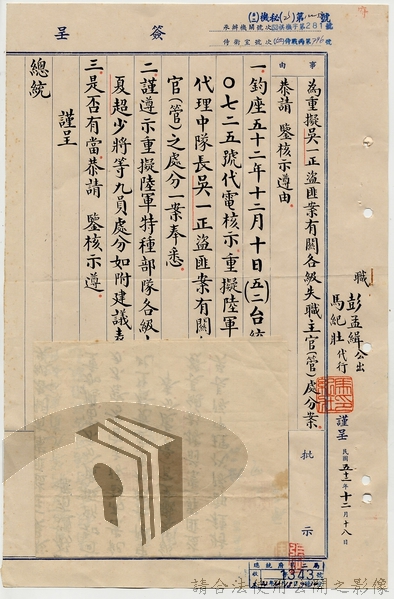 簽呈
事由
為重擬吳一正盜匪案有關各級失職主官(管)處分案
恭請 鑒核示遵由
一、鈞座五十二年十二月十日(五二)台統
〇七二五號代電核示重擬陸軍
代理中隊長吳一正盜匪案有關
官(管)之處分一案奉悉
二、謹遵示重擬陸軍特種部隊各級
夏超少將等九員處分如附建議表
三、是否有當恭請 鑒核示遵
謹呈
總統
職 彭孟緝公出
馬紀壯代行
謹呈
民國五十二年十二月十八日
批示
總統府第二局
1343
請合法使用公開之影像